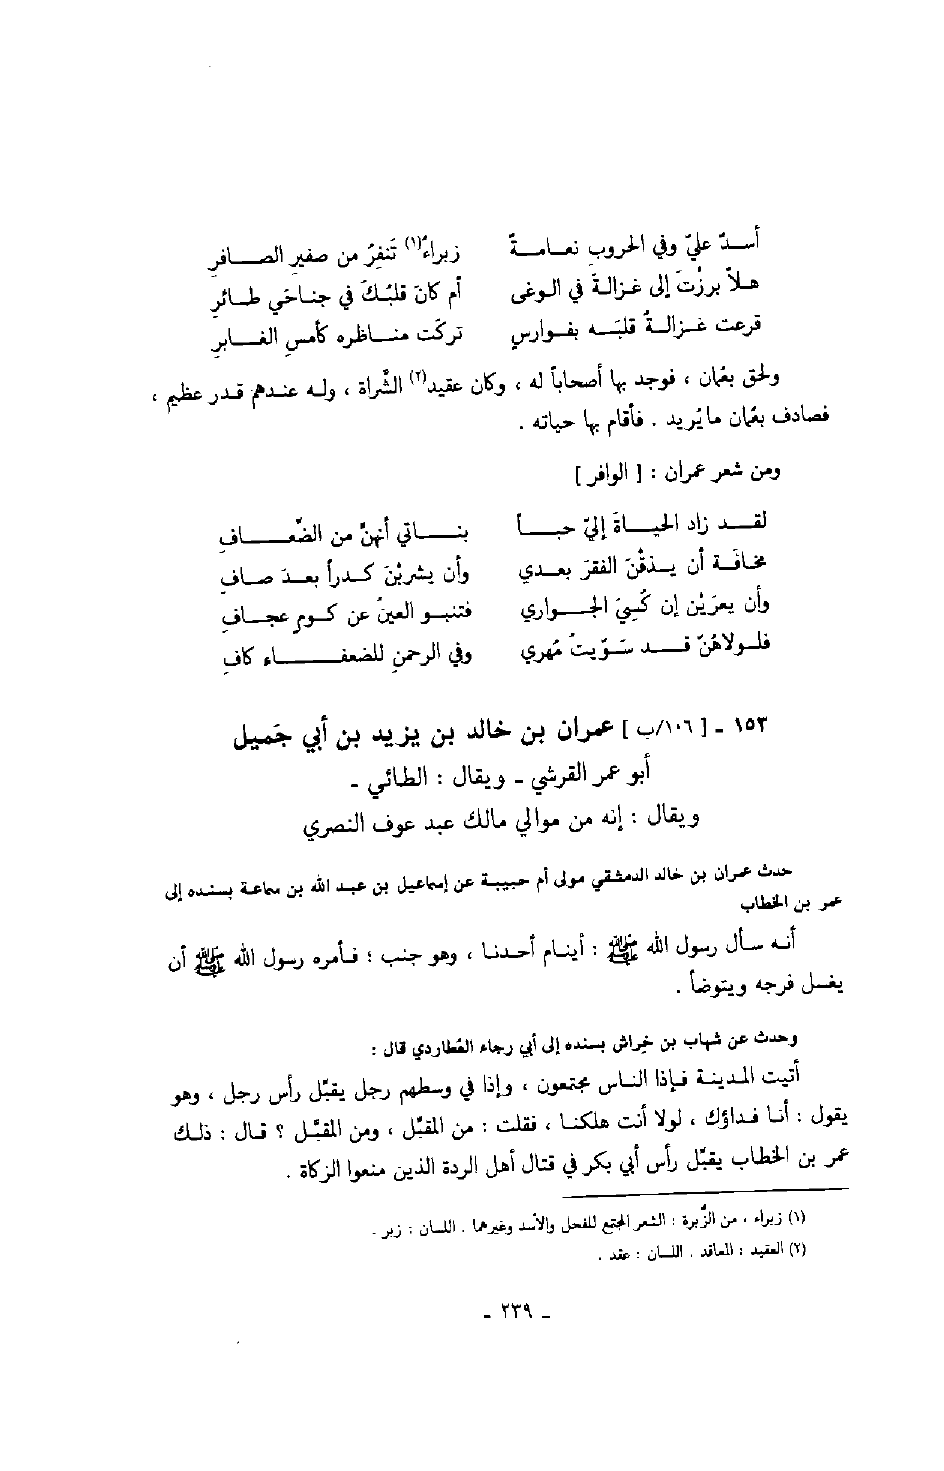 أسدٌ عليّ وفي الحروبِ نعامةٌ زبراءُ(١) تَنفِرُ من صفيرِ الصافرِ
هلاّ برزْتَ إلى غزالةَ في الوغى أم كانَ قلبُكَ في جناحَي طائرِ
قرعت غزالةُ قلبَه بفوارسٍ تركَت مناظره كأمسِ الغابرِ
ولحق بعُمان ، فوجد بها أصحاباً له ، وكان عقيد(٢) الشُّراة ، وله عندهم قدر عظيم ،
فصادف بعُمان ما يُريد . فأقام بها حياته .
ومن شعر عمران : [ الوافر ]
لقد زاد الحياةَ إليّ حباً بناتي أنهنَّ من الضِّعافِ
مخافَة أن يذقْنَ الفقرَ بعدي وأن يشربْنَ كدراً بعدَ صافِ
وأن يعرَيْن إن كُسِيَ الجواري فتنبو العينُ عن كومٍ عجافِ
فلولاهُنّ قد سَوّيتُ مُهري وفي الرحمنِ للضعفاء كافِ
١٥٣ ـ [ ١٠٦/ب ] عمران بن خالد بن يزيد بن أبي جَميل
أبو عمر القرشي ـ ويقال : الطائي ـ
ويقال : إنه من موالي مالك عبد عوف النصري
حدث عمران بن خالد الدمشقي مولى أم حبيبة عن إسماعيل بن عبد الله بن سماعة بسنده إلى
عمر بن الخطاب
أنه سأل رسول الله ﷺ : أينام أحدنا ، وهو جنب ؛ فأمره رسول الله ﷺ أن
يغسل فرجه ويتوضأ .
وحدث عن شهاب بن خِراش بسنده إلى أبي رجاء العُطاردي قال :
أتيت المدينة فإذا الناس مجتمعون ، وإذا في وسطهم رجل يقبِّل رأس رجل ، وهو
يقول : أنا فداؤك ، لولا أنت هلكنا ، فقلت : من المقبِّل ، ومن المقبَّل ؟ قال : ذلك
عمر بن الخطاب يقبِّل رأس أبي بكر في قتال أهل الردة الذين منعوا الزكاة .
(١) زبراء ، من الزُّبرة : الشعر المجتمع للفحل والأسد وغيرهما . اللسان : زبر .
(٢) العقيد : المعاقد . اللسان : عقد .
ـ ٢٣٩ ـ